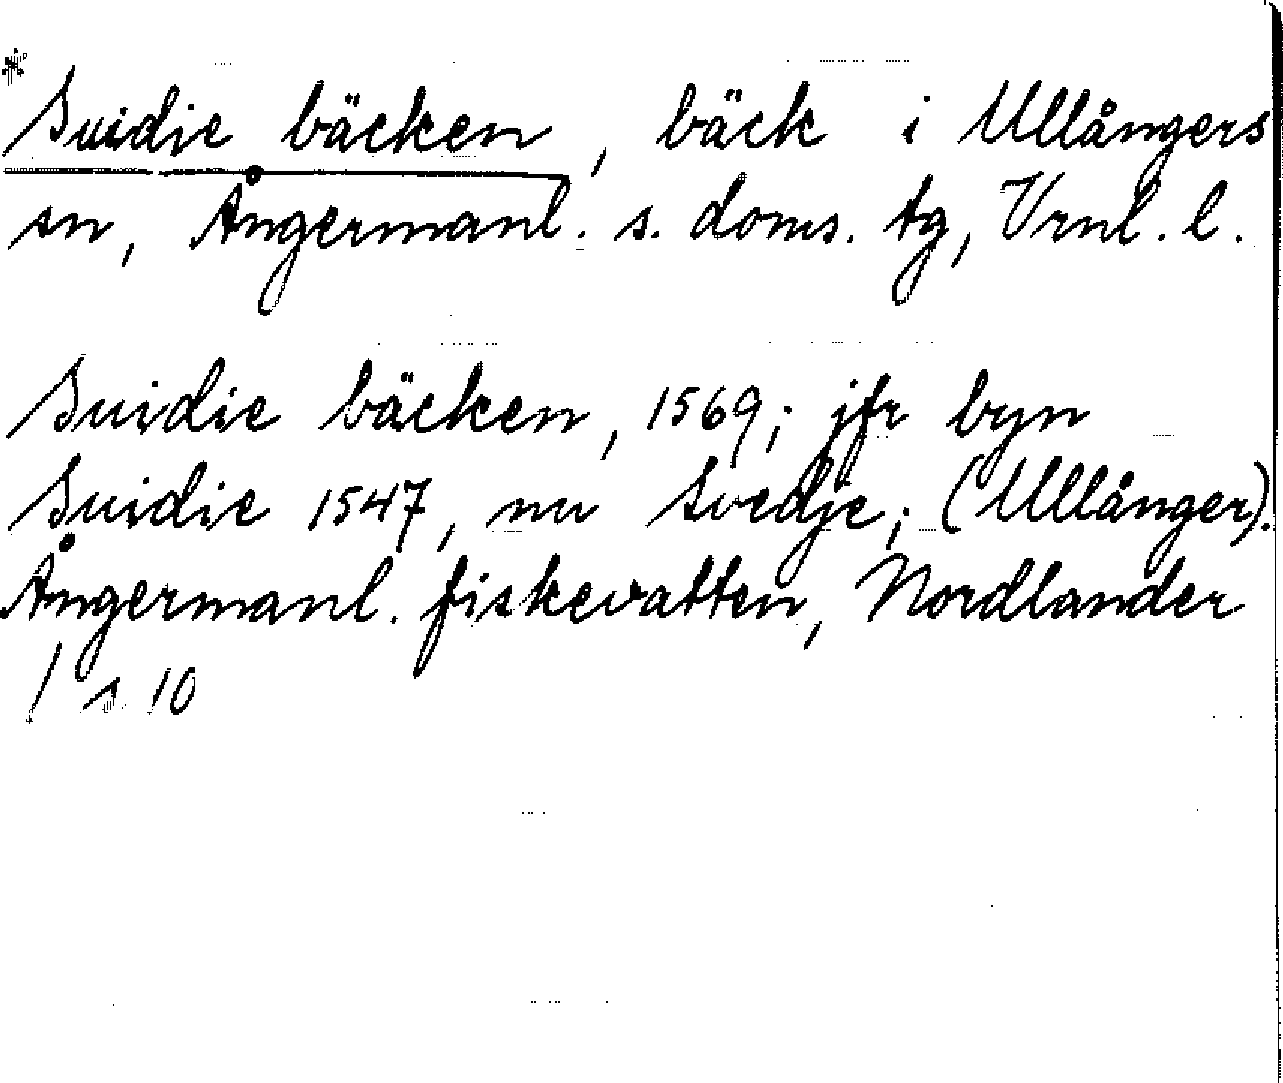 * Suidie bäcken, bäck i Ullångers
sn, Ångermanl. s. doms. tg, Vrnl. l.
Suidie bäcken, 1569; jfr byn
Suidie 1547, nu Svedje; (Ullånger).
Ångermanl. fiskevatten, Nordlander
/ s. 10